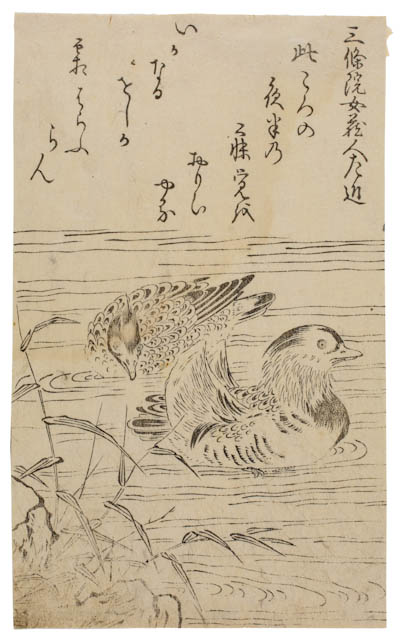 三條院女蔵人左近
此ころの
夜半乃
寐覚
おもひ
やる
いか
なる
をしか
霜はらふ
らん